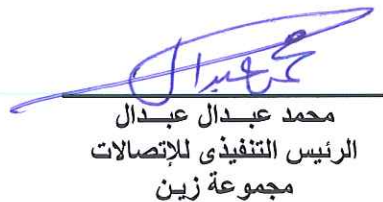 محمد عبدال عبدال
الرئيس التنفيذى للإتصالات
مجموعة زين